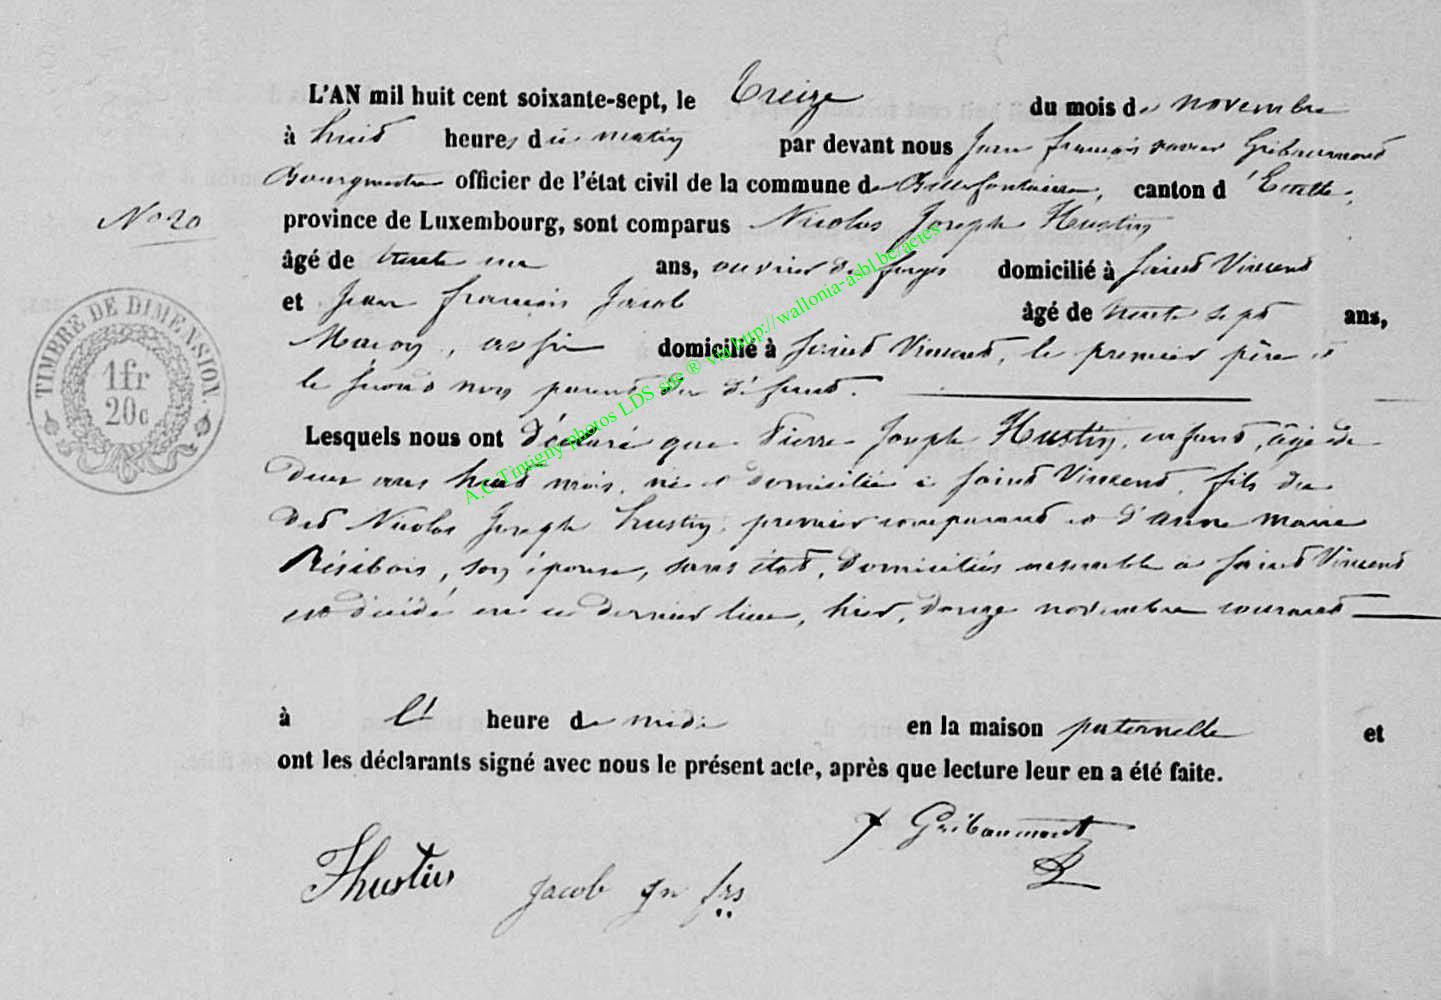 L'AN mil huit cent soixante-sept, le treize du mois de novembre
à huit heures du matin par devant nous Jean françois xavier Gribaumont
Bourgmestre officier de l'état civil de la commune de Bellefontaine, canton d'Etalle,
No 20
province de Luxembourg, sont comparus Nicolas Joseph Hustin
âgé de trente un ans, ouvrier de forges domicilié à Saint Vincent
et Jean françois Jacob âgé de trente sept ans,
Maçon, domicilié à Saint Vincent, le premier père et
le second non parent du défunt.
Lesquels nous ont déclaré que Pierre Joseph Hustin, enfant, âgé de
deux ans huit mois, né et domicilié à Saint Vincent, fils du
dit Nicolas Joseph hustin, premier comparant et d'anne marie
Résibois, son épouse, sans état, domiciliés ensemble à Saint Vincent
est décédé en ce dernier lieu, hier, douze novembre courant
à l' heure de midi en la maison paternelle et
ont les déclarants signé avec nous le présent acte, après que lecture leur en a été faite.
Gribaumont
Jhustin Jacob Jn frs
TIMBRE DE DIMENSION.
1fr
20c
A.C Tintigny photos LDS sur ® via http://wallonia-asbl.be/actes